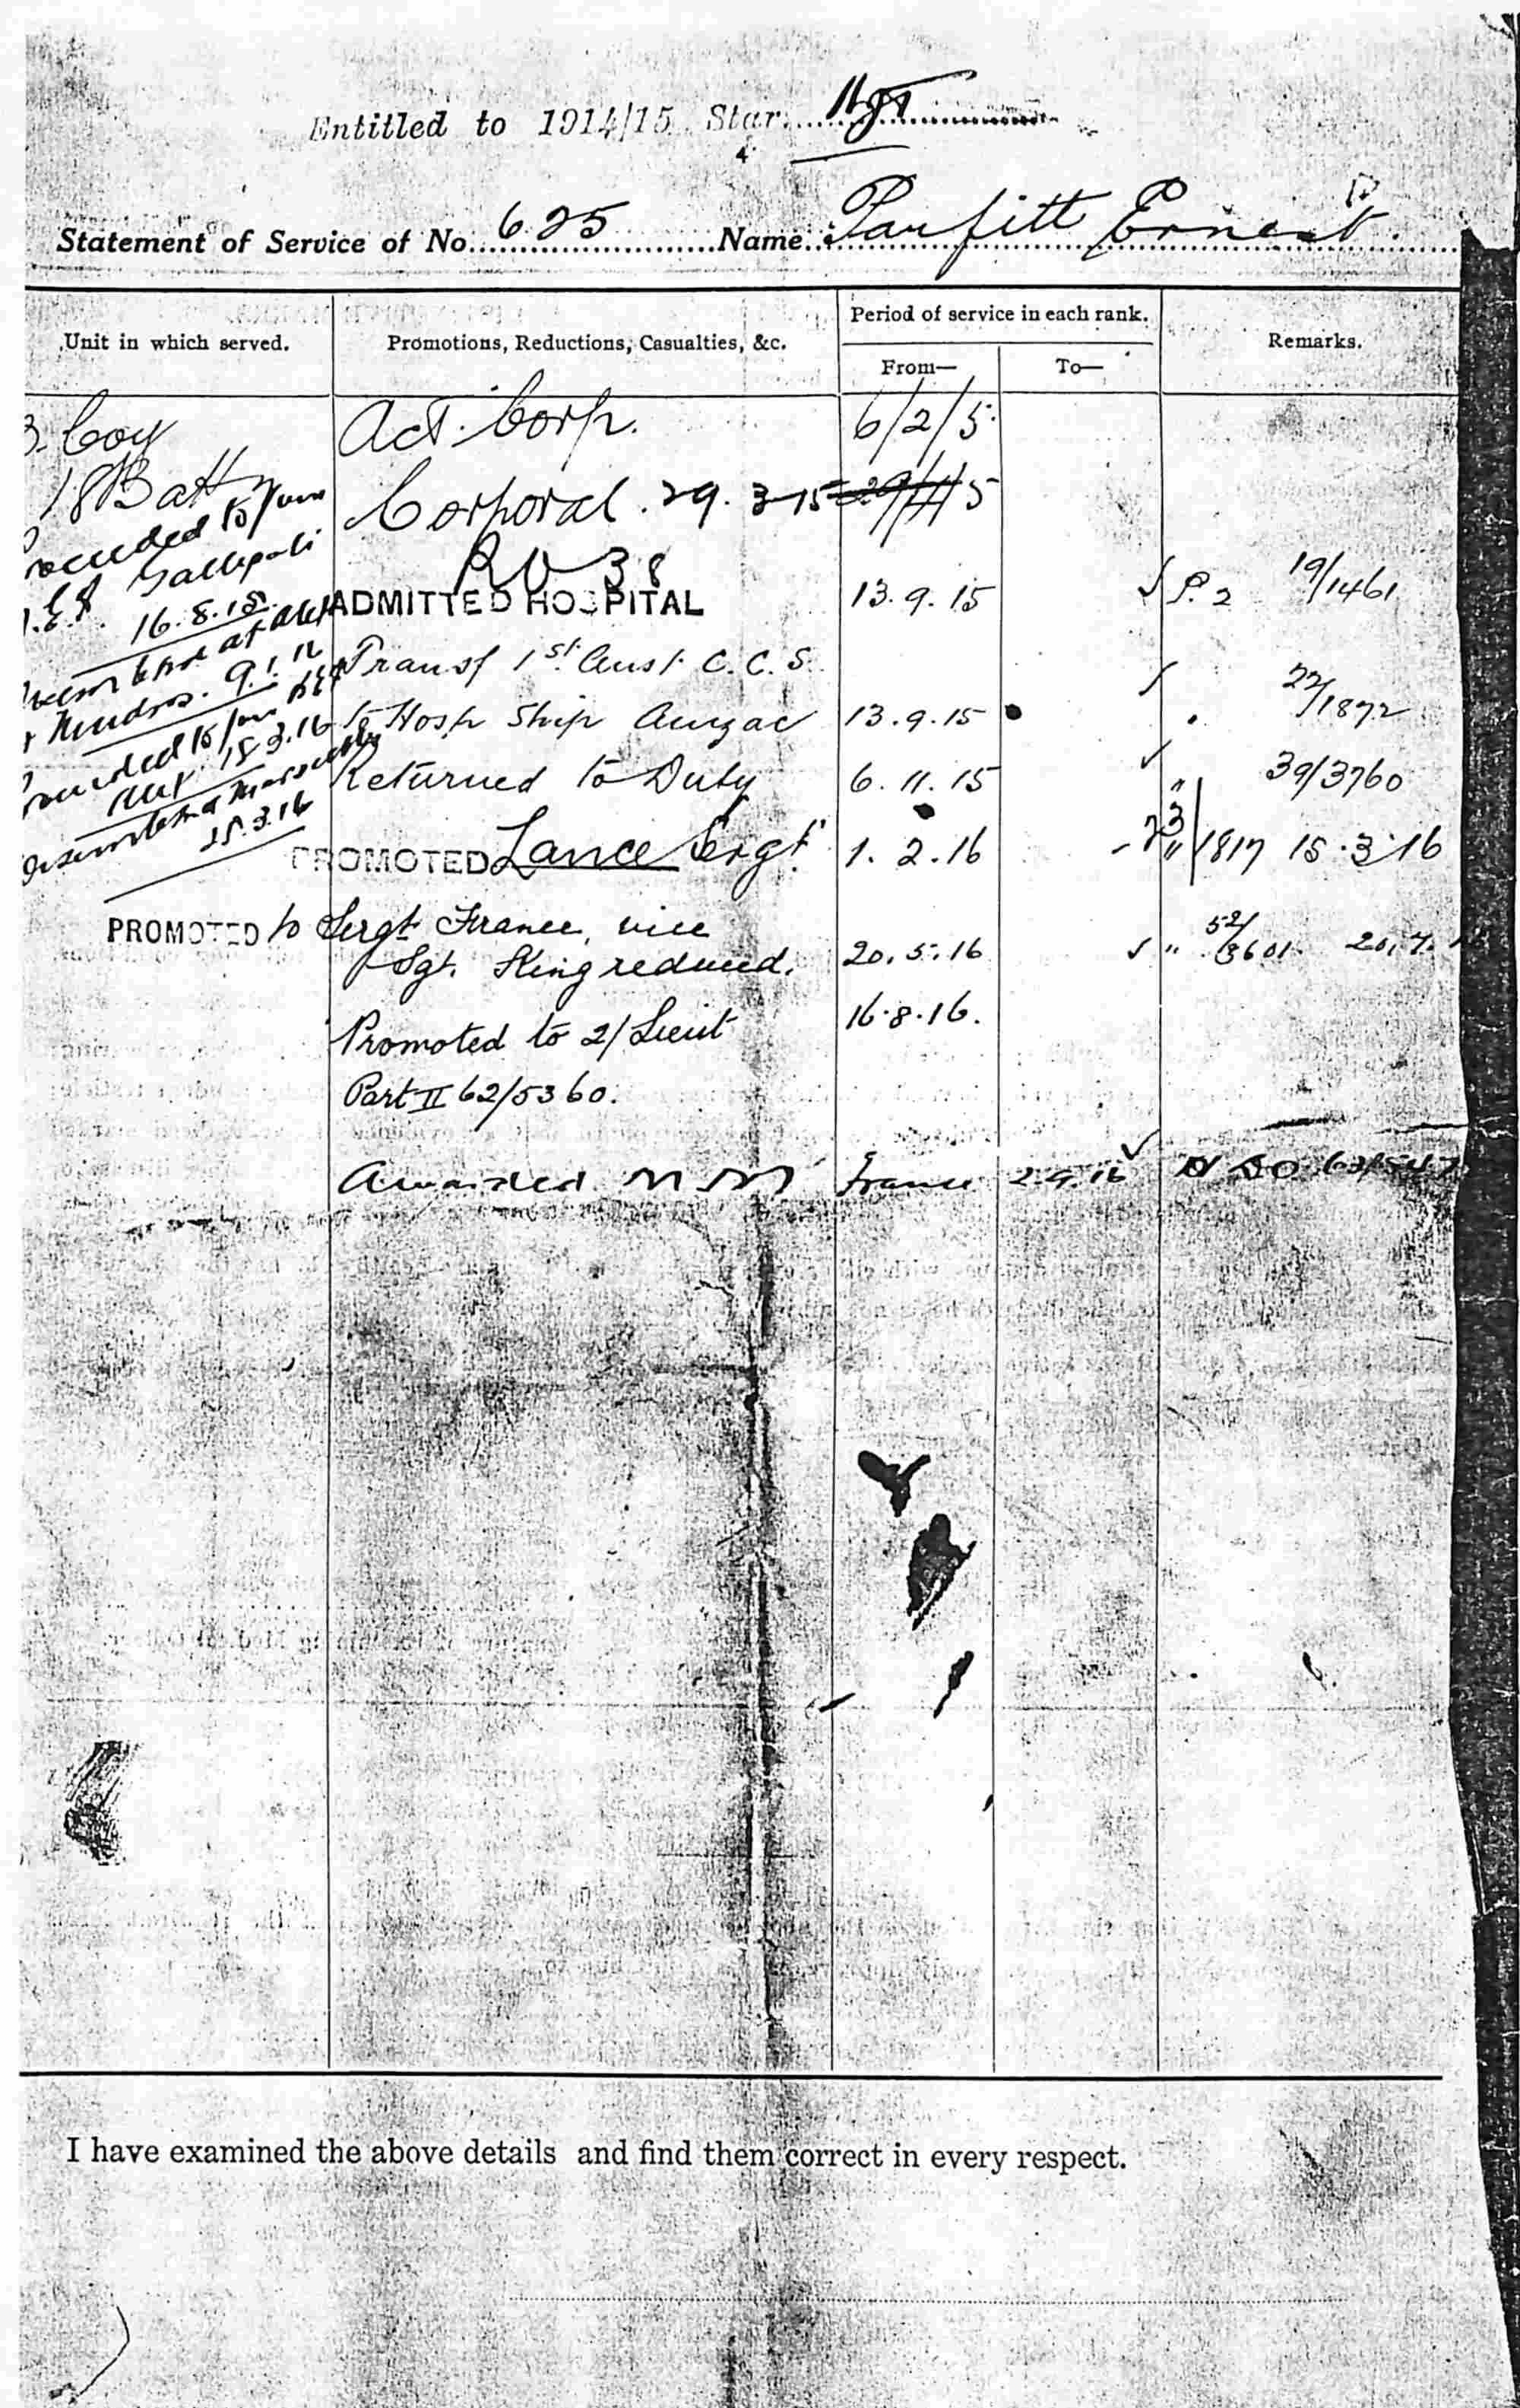 Entitled to 1914/15 Star
Statement of Service of No. 625 Name: Parfitt Ernest.
Unit in which served.
Promotions, Reductions, Casualties, &c.
Period of service in each rank.
From—
To—
Remarks.
B. Coy Act. Corp. 6/2/5
18 Battn Corporal. 29. 3-15 29/4/5
Proceeded to join
M.E.F. Gallipoli
16.8.15
ADMITTED HOSPITAL 13.9.15 P. 2 19/1461
Transf 1st Aust. C. C. S. 22/1872
To Hosp Ship Anzac 13.9.15
Mudros. 9.1.16
Proceeded to join BEF
Alex. 18.3.16
Returned to Duty 6.11.15 " 39/3760
Disembarked Marseilles
25.3.16
PROMOTED Lance Sergt. 1.2.16 23/1817 15.3.16
PROMOTED to Sergt France, vice
Sgt. King reduced. 20.5.16 " 52/3601. 20.7.
Promoted to 2/Lieut 16.8.16.
Part II 62/5360.
Awarded M M France 2.9.16
I have examined the above details and find them correct in every respect.